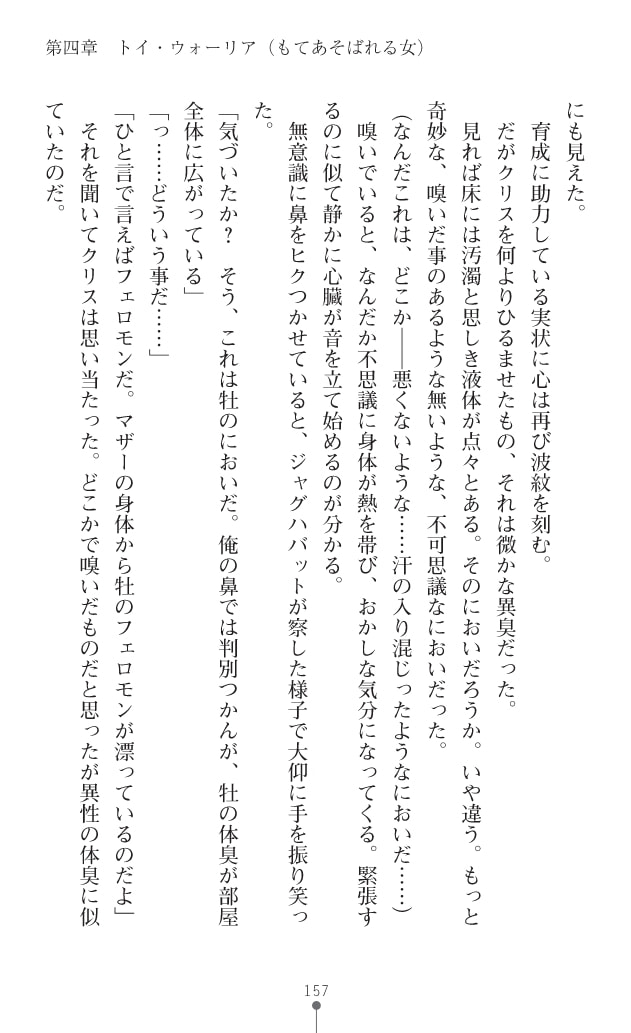 第四章　トイ・ウォーリア（もてあそばれる女）
にも見えた。
　育成に助力している実状に心は再び波紋を刻む。
　だがクリスを何よりひるませたもの、それは微かな異臭だった。
　見れば床には汚濁と思しき液体が点々とある。そのにおいだろうか。いや違う。もっと
奇妙な、嗅いだ事のあるような無いような、不可思議なにおいだった。
（なんだこれは、どこか――悪くないような……汗の入り混じったようなにおいだ……）
　嗅いでいると、なんだか不思議に身体が熱を帯び、おかしな気分になってくる。緊張す
るのに似て静かに心臓が音を立て始めるのが分かる。
　無意識に鼻をヒクつかせていると、ジャグハバットが察した様子で大仰に手を振り笑っ
た。
「気づいたか？　そう、これは牡のにおいだ。俺の鼻では判別つかんが、牡の体臭が部屋
全体に広がっている」
「っ……どういう事だ……」
「ひと言で言えばフェロモンだ。マザーの身体から牡のフェロモンが漂っているのだよ」
　それを聞いてクリスは思い当たった。どこかで嗅いだものだと思ったが異性の体臭に似
ていたのだ。
157